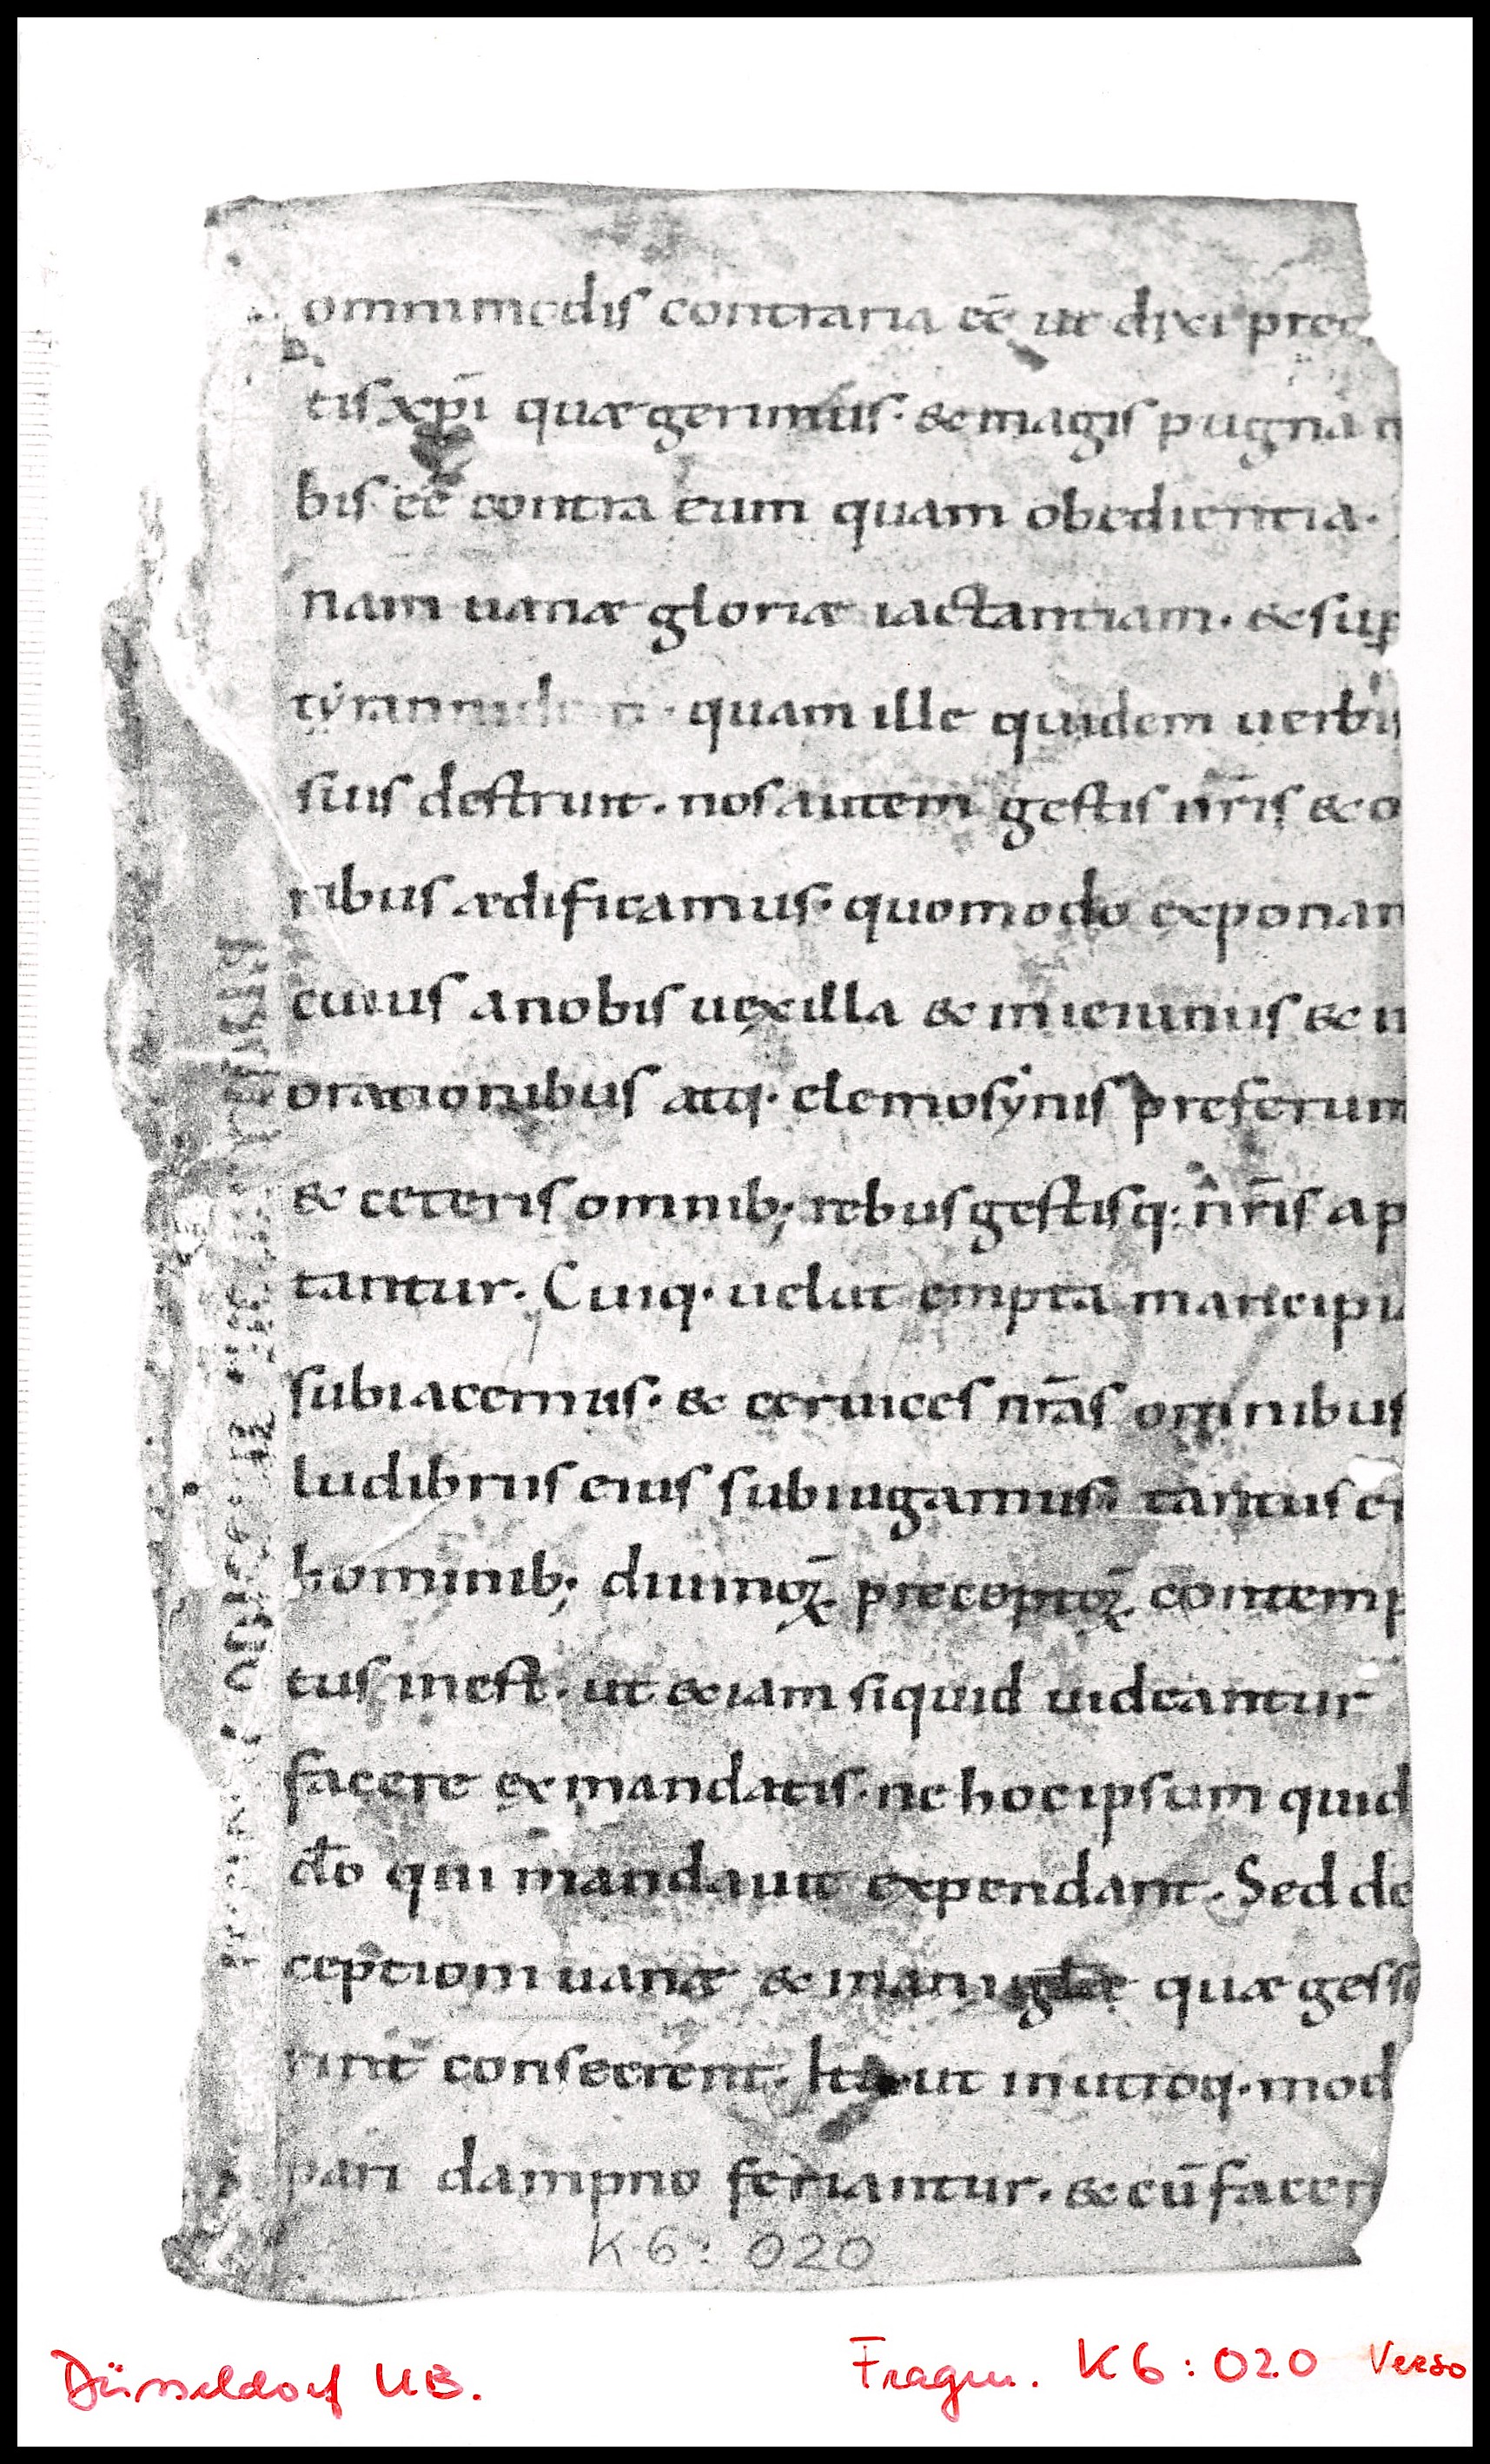 omnimodis contraria eē ut dixi prec
tis xp̄i quæ gerimus. & magis pugna n
bis eē contra eum quam obedientia.
nam uanæ gloriæ iactantiam. & sup
tyrannide quam ille quidem uerbis
suis destruit. nos autem gestis nr̄is & o
ribus ædificamus. quomodo exponam
cuius a nobis uexilla & in ieiuniis & in
orationibus atq· elemosynis preferun
& ceteris omnib; rebus gestisq· nr̄is ap
tantur. Cuiq· uelut empta mancipi
subiacemus. & ceruices nr̄as omnibus
ludibriis eius subiugamus. tantus ei
hominib; diuinoꝝ preceptoꝝ contemp
tus inest. ut &iam siquid uideantur
facere ex mandatis. ne hoc ipsum quid
do qui mandauit expendant. Sed de
ceptioni uanæ & inani glæ quæ gesse
rint consecrent. Ita ut in utroq· mod
pari dampno feriantur. & cū facer
K 6: 020
Düsseldorf UB.
Fragm. K6:020 Verso